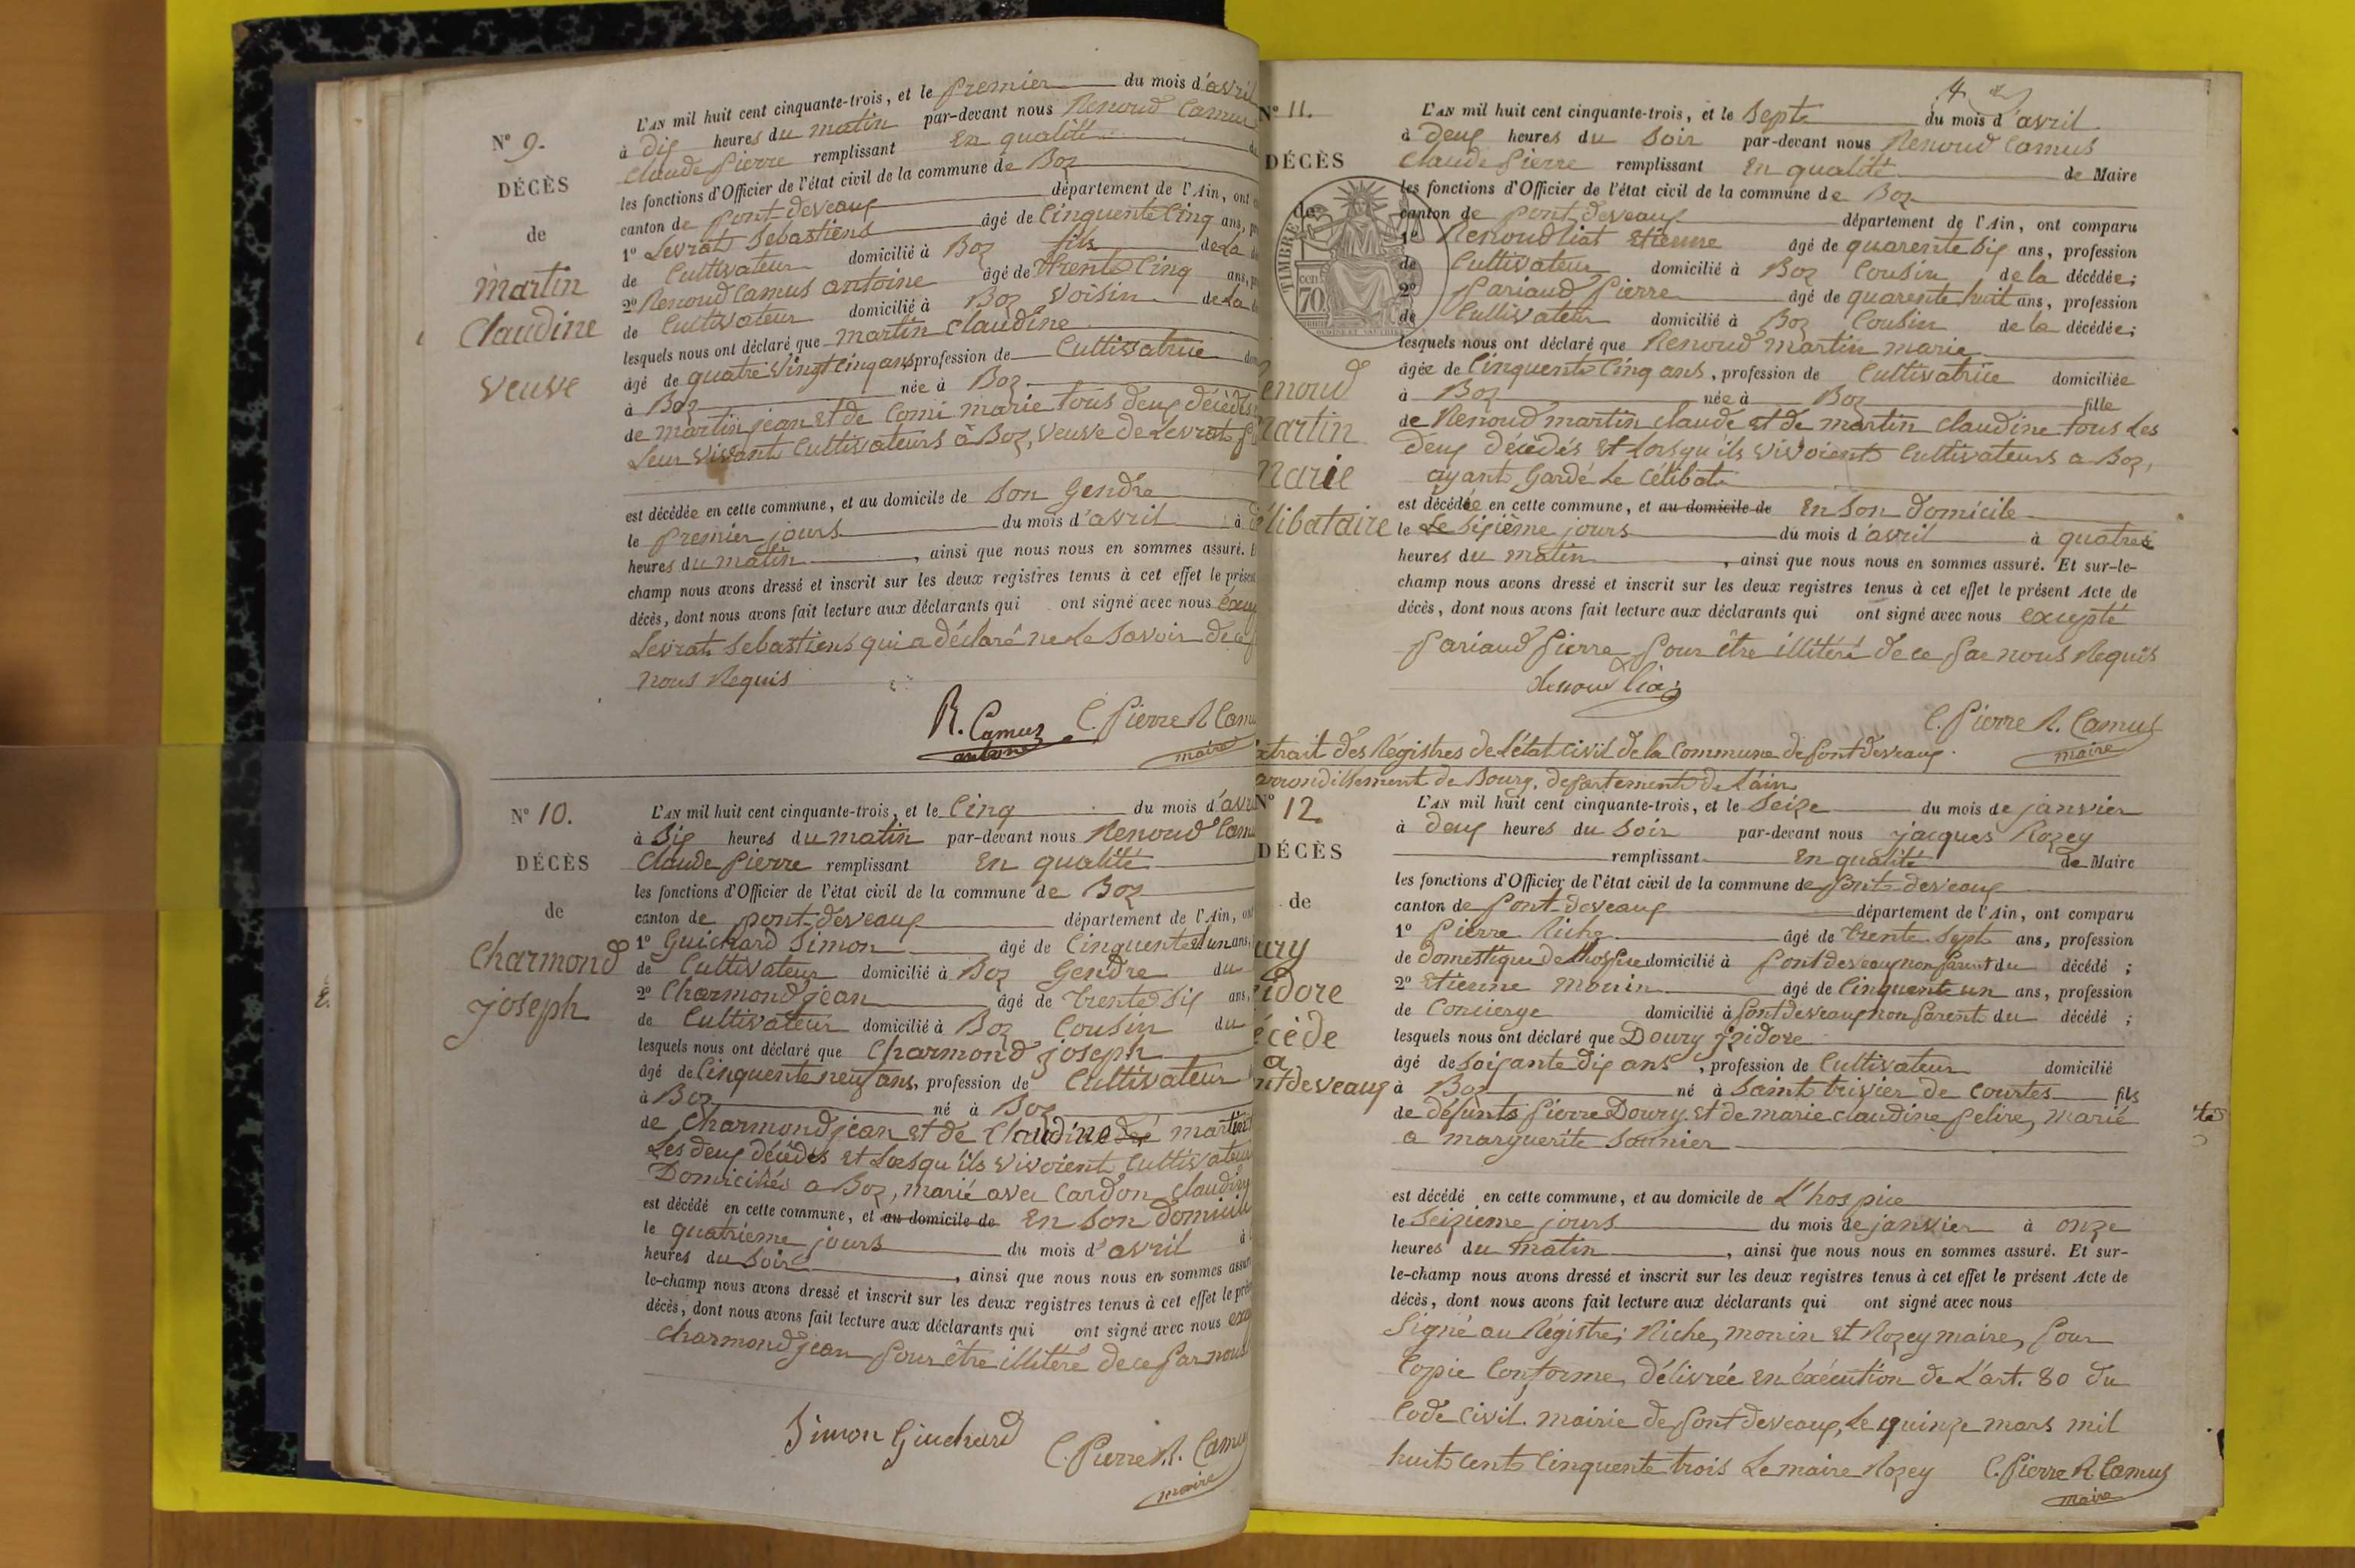 N° 9.
DÉCÈS
de
martin
Claudine
veuve
L'AN mil huit cent cinquante-trois, et le premier du mois d'avril
à dix heures du matin par-devant nous Renoud Camus
Claude Pierre remplissant En qualité
les fonctions d'Officier de l'état civil de la commune de Boz
canton de pont-deveaux département de l'Ain, ont
1° Levrat Sebastiens âgé de Cinquente Cinq ans,
de Cultivateur domicilié à Boz fils de La
2° Renoud Camus antoine âgé de trente Cinq ans,
de Cultivateur domicilié à Boz Voisin de La
lesquels nous ont déclaré que martin Claudine
âgé de quatre Vingt Cinq ans profession de Cultivatrice
à Boz née à Boz
de martin jean et de Comi marie tous deux décédés
Leur vivant Cultivateurs à Boz, veuve de Levrat
est décédée en cette commune, et au domicile de Son Gendre
le premier jours du mois d'avril à
heures du matin , ainsi que nous nous en sommes assuré.
champ nous avons dressé et inscrit sur les deux registres tenus à cet effet le présent
décès, dont nous avons fait lecture aux déclarants qui ont signé avec nous
Levrat Sebastiens qui a déclaré ne Le Savoir de ce
nous Requis
R. Camus antoine C. Pierre R Camu
maire
N° 10.
DÉCÈS
de
Charmond
joseph
L'AN mil huit cent cinquante-trois, et le Cinq du mois d'avril
à Six heures du matin par-devant nous Renoud Camu
Claude Pierre remplissant En qualité
les fonctions d'Officier de l'état civil de la commune de Boz
canton de pont-deveaux département de l'Ain, ont
1° Guichard Simon âgé de Cinquente et un ans,
de Cultivateur domicilié à Boz Gendre du
2° Charmond jean âgé de trente Six ans,
de Cultivateur domicilié à Boz Cousin du
lesquels nous ont déclaré que Charmond joseph
âgé de Cinquente neuf ans, profession de Cultivateur
à Boz né à Boz
de Charmond jean et de Claudine martin
Les deux décédés et Lorsqu'ils vivoient Cultivateurs
Domiciliés a Boz, marié avec Cardon Claudine
est décédé en cette commune, et au domicile de En Son Domicile
le quatrième jours du mois d'avril à
heures du Soir , ainsi que nous nous en sommes assuré
le-champ nous avons dressé et inscrit sur les deux registres tenus à cet effet le
décès, dont nous avons fait lecture aux déclarants qui ont signé avec nous
Charmond jean pour être illitéré de ce par nous
Simon Guichard C. Pierre R. Camu
maire
4
N° 11.
DÉCÈS
de
enoud
martin
marie
élibataire
TIMBRE
70
L'AN mil huit cent cinquante-trois, et le Sept du mois d'avril
à deux heures du Soir par-devant nous Renoud Camus
Claude Pierre remplissant En qualité de Maire
les fonctions d'Officier de l'état civil de la commune de Boz
canton de pont-deveaux département de l'Ain, ont comparu
1° Renoud liat Etienne âgé de quarente Six ans, profession
de Cultivateur domicilié à Boz Cousin de la décédée;
2° Pariaud Pierre âgé de quarente huit ans, profession
de Cultivateur domicilié à Boz Cousin de la décédée;
lesquels nous ont déclaré que Renoud martin marie
âgée de Cinquente Cinq ans, profession de Cultivatrice domiciliée
à Boz née à Boz fille
de Renoud martin Claude et de martin Claudine tous Les
deux décédés et Lorsqu'ils vivoient Cultivateurs a Boz,
ayant Gardé Le Célibat
est décédée en cette commune, et au domicile de En Son domicile
le Le Sixième jours du mois d'avril à quatres
heures du matin , ainsi que nous nous en sommes assuré. Et sur-le-
champ nous avons dressé et inscrit sur les deux registres tenus à cet effet le présent Acte de
décès, dont nous avons fait lecture aux déclarants qui ont signé avec nous excepté
Pariaud Pierre pour être illitéré de ce par nous Requis
Renoud Liat
C. Pierre R. Camus
maire
xtrait des Régistres de L'état Civil de la Commune de pont deveaux.
arrondissement de Bourg, departement de L'ain
N° 12.
DÉCÈS
de
ury
idore
écède
a
ntdeveaux
L'AN mil huit cent cinquante-trois, et le Seize du mois de janvier
à deux heures du Soir par-devant nous jacques Rozey
remplissant En qualité de Maire
les fonctions d'Officier de l'état civil de la commune de pont-deveaux
canton de pont-deveaux département de l'Ain, ont comparu
1° Pierre Riche âgé de trente Sept ans, profession
de domestique de L'hospice domicilié à pontdeveaux non parent du décédé ;
2° Etienne Monin âgé de Cinquente un ans, profession
de Concierge domicilié à pontdeveaux non parent du décédé ;
lesquels nous ont déclaré que Doury jzidore
âgé de soixante dix ans , profession de Cultivateur domicilié
à Boz né à Saint trivier de Courtes fils
de défunts Pierre Doury et de marie claudine pelire, marié
a marguerite Saunier
est décédé en cette commune, et au domicile de L'hospice
le Seizieme jours du mois de janvier à onze
heures du matin , ainsi que nous nous en sommes assuré. Et sur-
le-champ nous avons dressé et inscrit sur les deux registres tenus à cet effet le présent Acte de
décès, dont nous avons fait lecture aux déclarants qui ont signé avec nous
Signé au Régistre; Riche, monin et Rozey maire, pour
Copie Conforme, délivrée en éxécution de L'art. 80 du
Code Civil. mairie de pont deveaux, Le quinze mars mil
huit cent Cinquente trois Le maire Rozey C. Pierre R Camus
maire